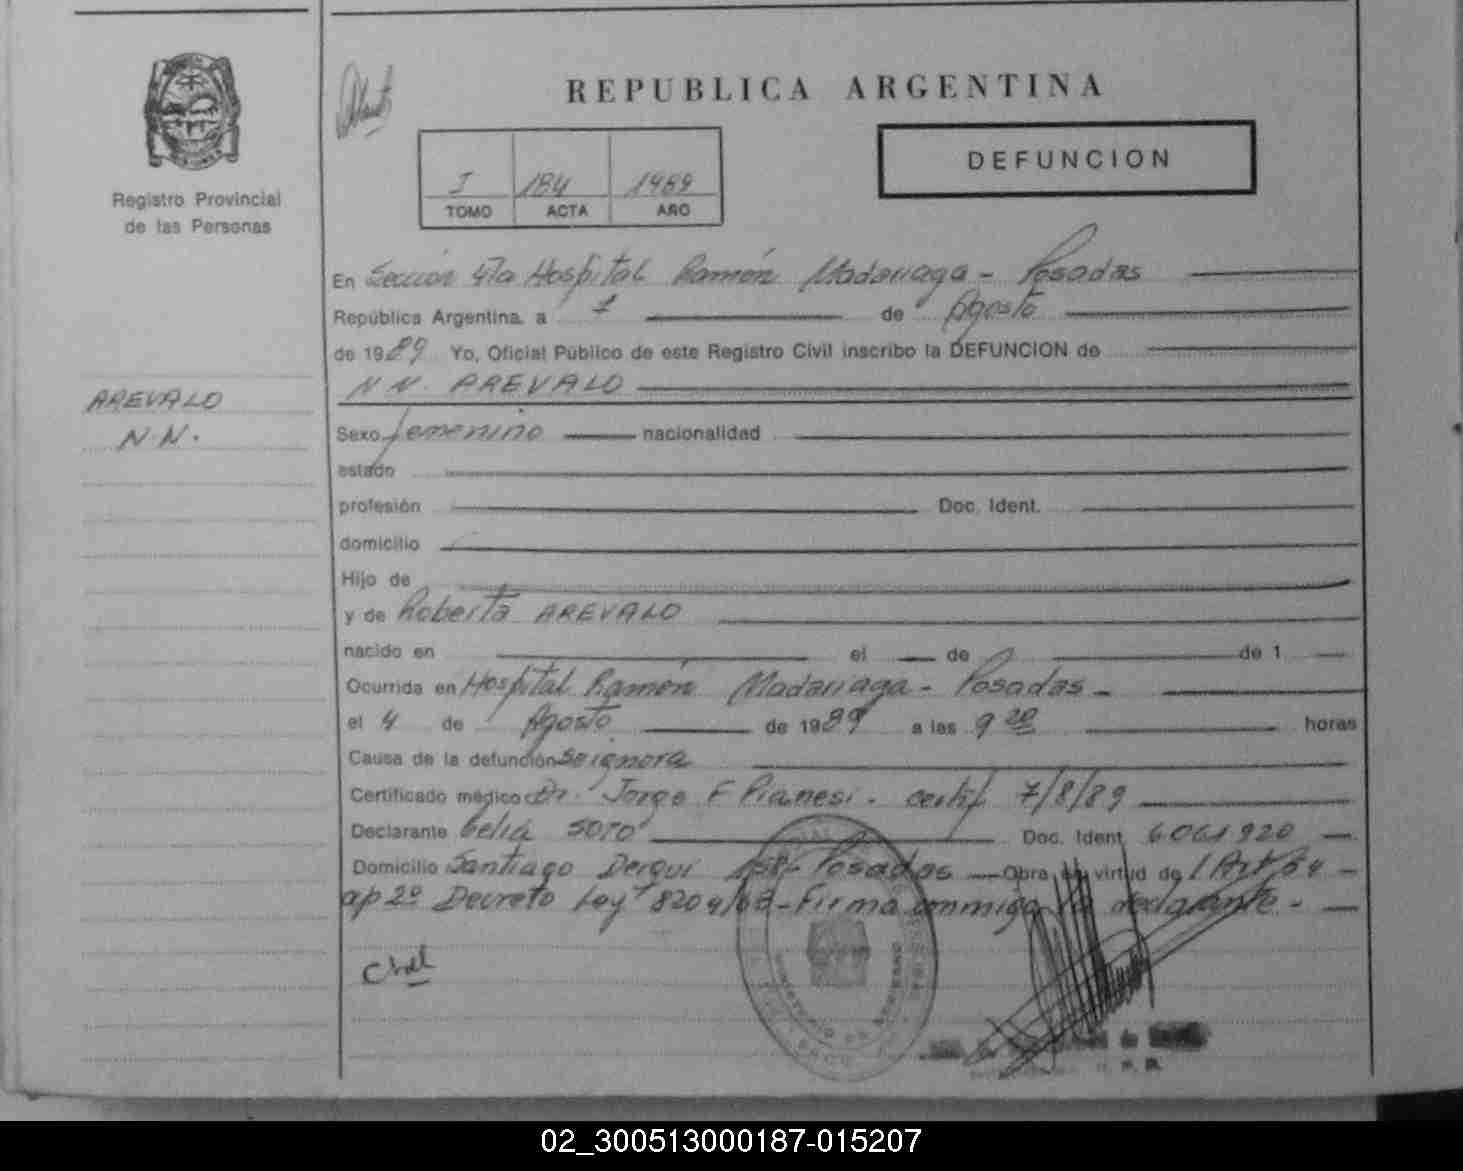 REPUBLICA ARGENTINA
DEFUNCION
I 184 1989
TOMO ACTA AÑO
Registro Provincial
de las Personas
AREVALO
N.N.
En Sección 47a Hospital Ramón Madariaga - Posadas
República Argentina, a 7 de Agosto
de 1989 Yo, Oficial Público de este Registro Civil inscribo la DEFUNCION de
N N. AREVALO
Sexo femenino nacionalidad
estado
profesión Doc. Ident.
domicilio
Hijo de
y de Roberta AREVALO
nacido en el de de 1
Ocurrida en Hospital Ramón Madariaga - Posadas -
el 4 de Agosto de 1989 a las 9 20 horas
Causa de la defunción se ignora
Certificado médico Dr. Jorge F Pianesi. certif 7/8/89
Declarante Celia SOTO Doc. Ident. 6061920
Domicilio Santiago Derqui 158 - Posadas - Obra en virtud de
ap 2º Decreto Ley 8204/63 - Firma conmigo la declarante -
MINISTERIO DE GOBIERNO
02_300513000187-015207